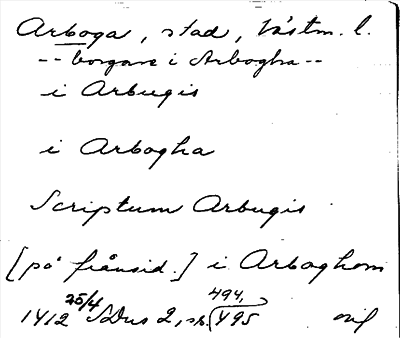 Arboga, stad, Västm. l.
-- borgare i Arbogha --
i Arbugis
i Arbogha
Scriptum Arbugis
[på frånsid.] i Arboghom
1412 25/4 SDns 2, s. 494, 495 orig